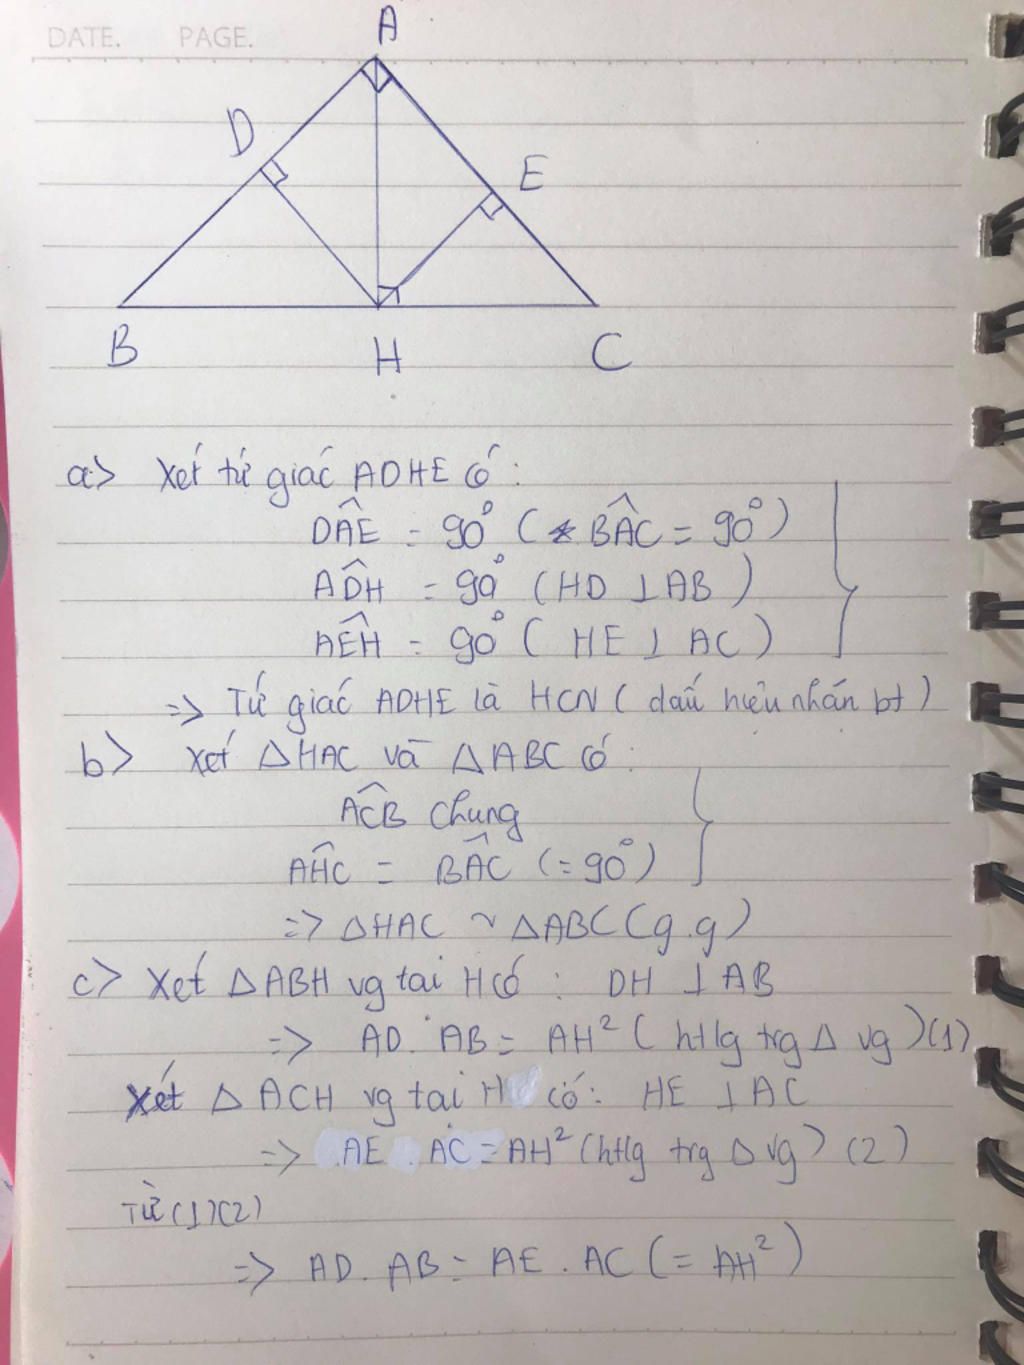 DATE. PAGE.
A
D
E
B H C
a> Xét tứ giác ADHE có:
DÂE = 90° ( BÂC = 90°)
AD̂H = 90° (HD ⊥ AB)
AÊH = 90° ( HE ⊥ AC)
=> Tứ giác ADHE là HCN ( dấu hiệu nhán bt)
b> Xét △HAC và △ABC có:
AĈB chung
AĤC = BÂC (=90°)
=> △HAC ~ △ABC (g.g)
c> Xét △ABH vg tai H có : DH ⊥ AB
=> AD. AB = AH² ( htlg trg △ vg) (1)
Xét △ ACH vg tai H có: HE ⊥ AC
=> AE . AC = AH² (htlg trg △ vg) (2)
Từ (1)(2)
=> AD. AB = AE . AC (= AH²)